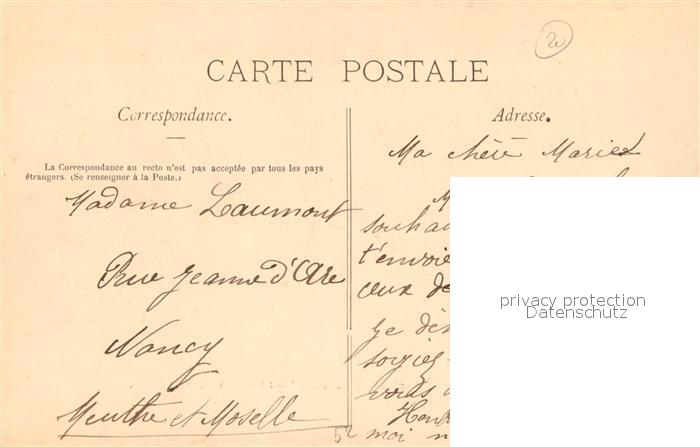 20
CARTE POSTALE
Correspondance.
La Correspondance au recto n'est pas acceptée par tous les pays
étrangers. (Se renseigner à la Poste.)
Madame Laumont
Rue Jeanne d'Arc
Nancy
Meurthe et Moselle
52
Adresse.
Ma chère Marie
M
souhai
t'envoie
ceux de
Je dés
soyiez
vous
moi n
privacy protection
Datenschutz